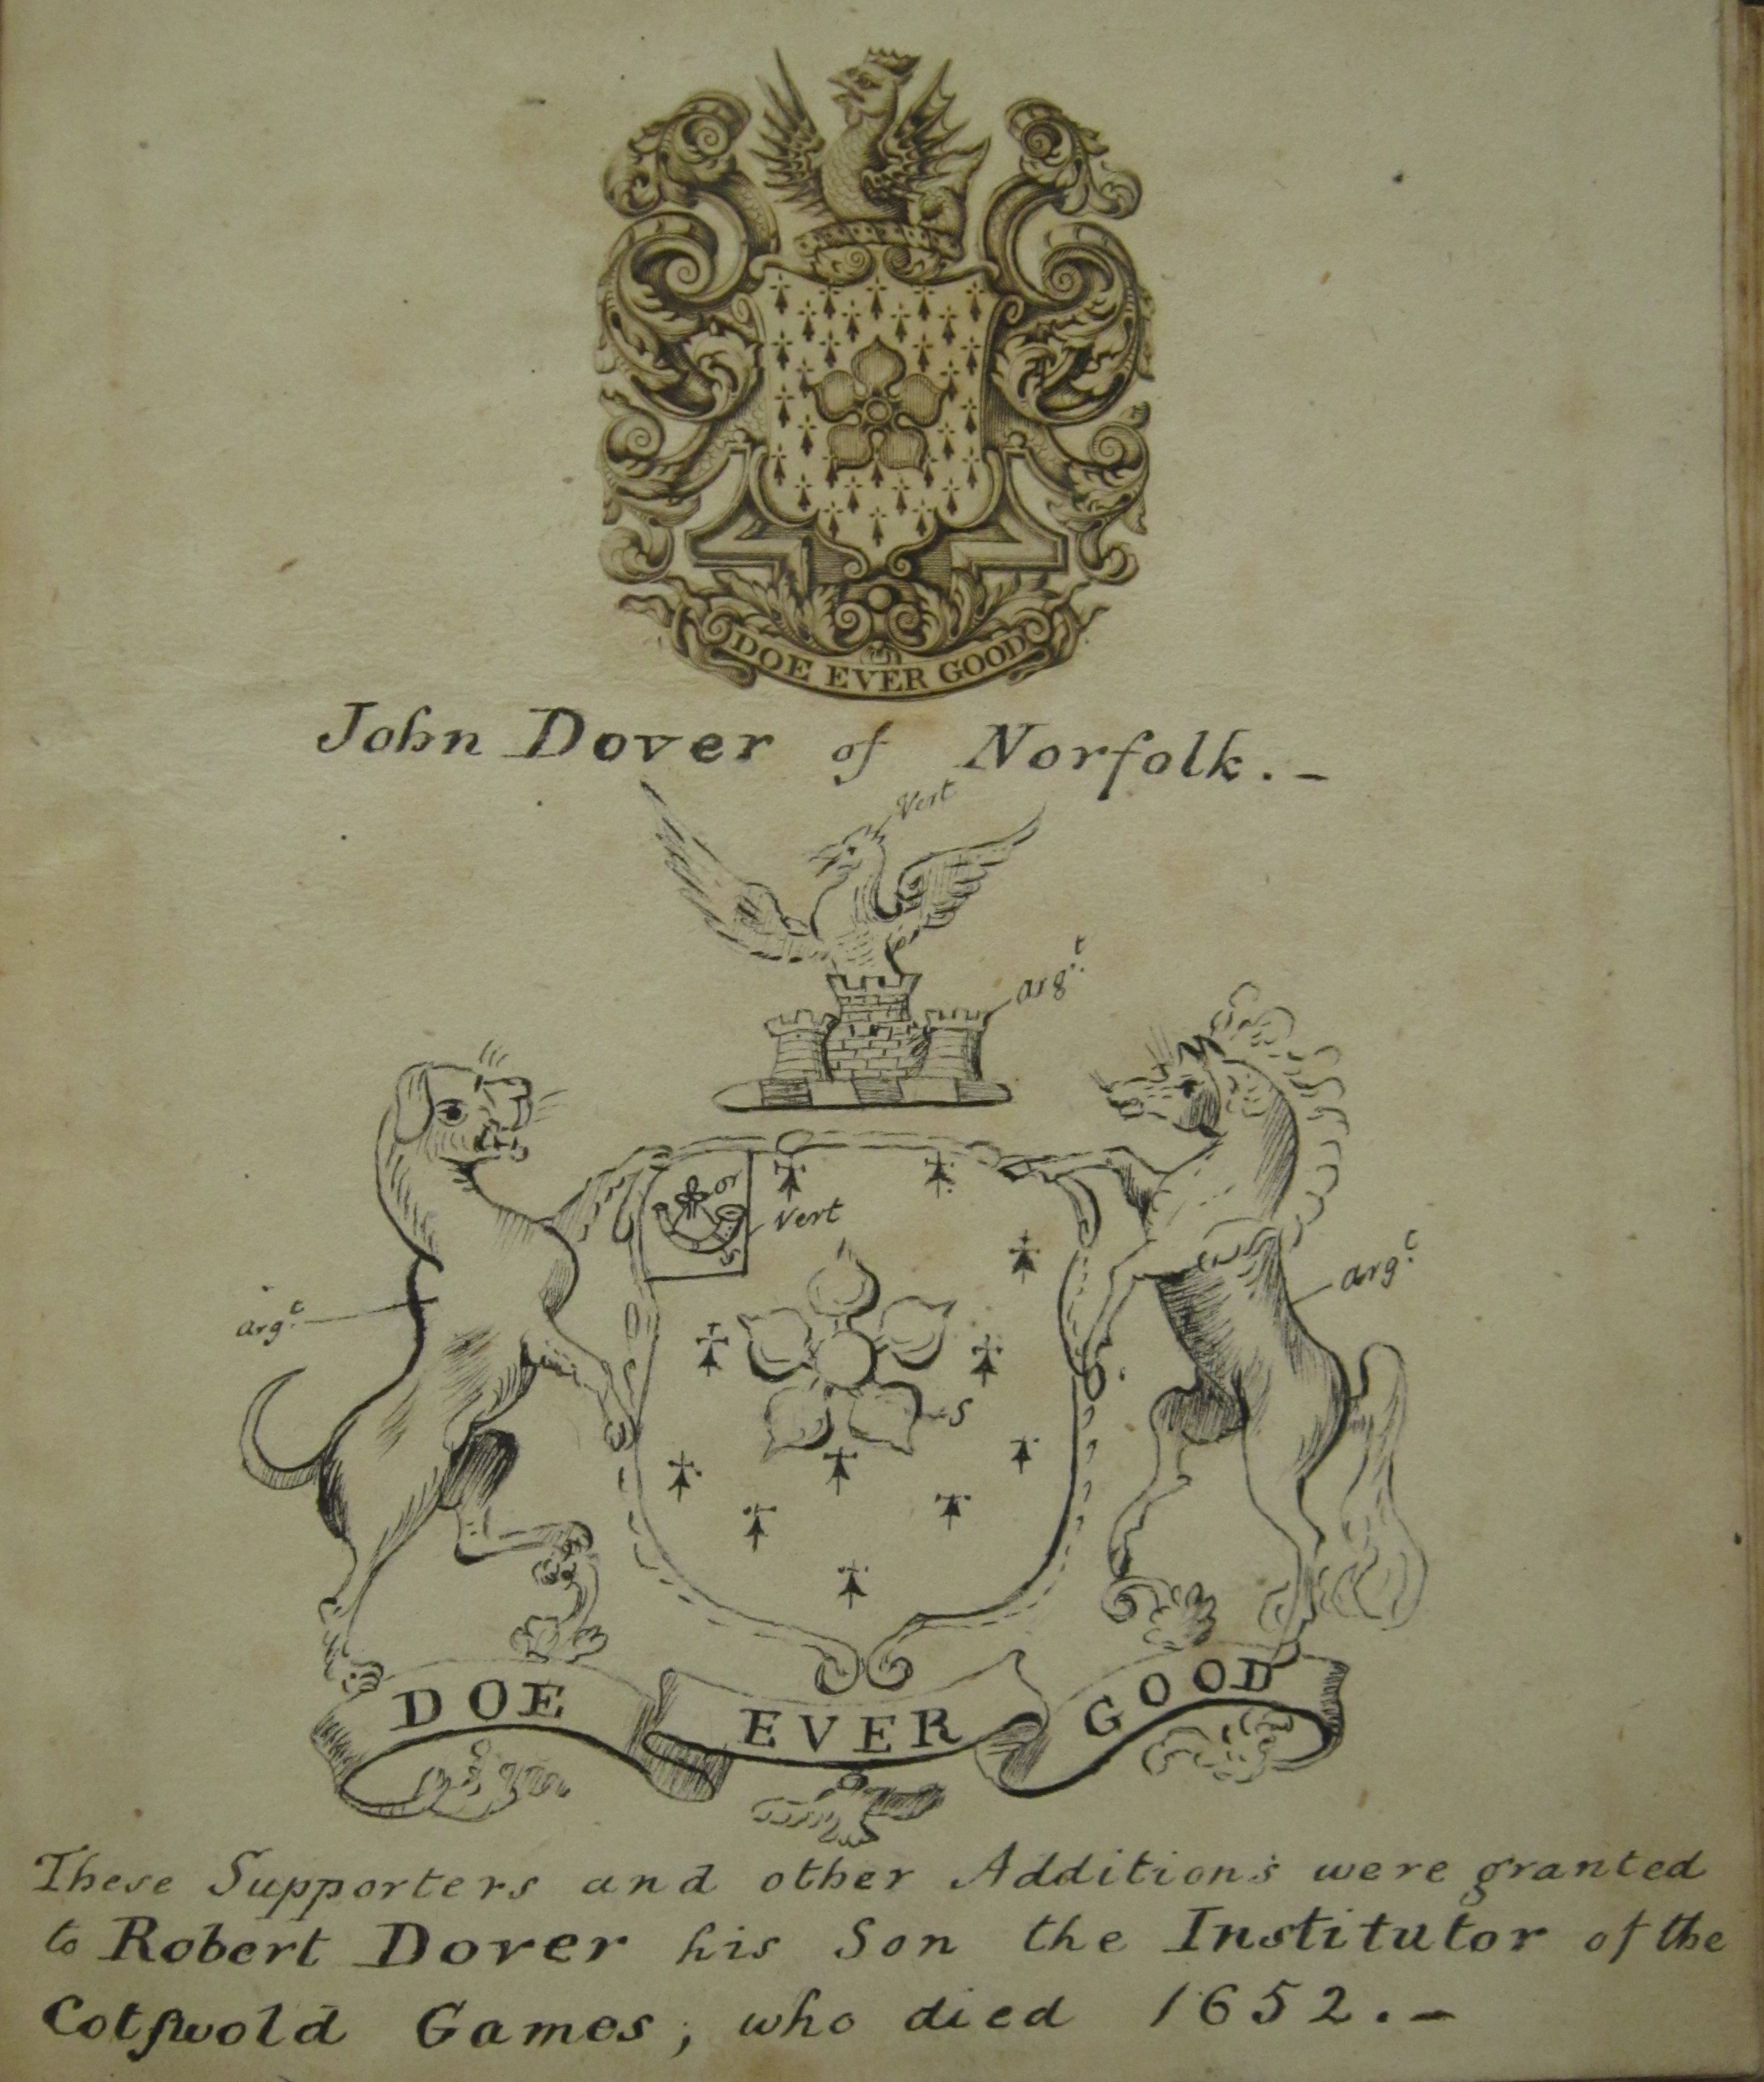 DOE EVER GOOD
John Dover of Norfolk. -
Vert
argt
or
Vert
S
argt
argt
S
DOE EVER GOOD
These Supporters and other Additions were granted
to Robert Dover his Son the Institutor of the
Cotſwold Games; who died 1652. -